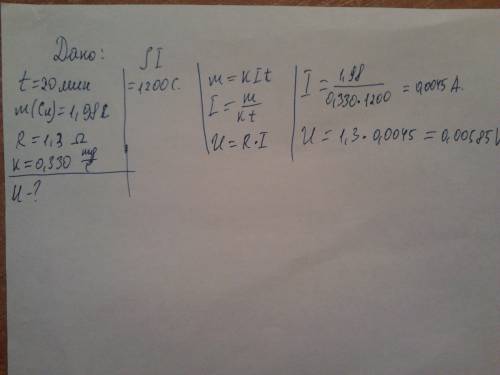 Дано:
t=20мин
m(Cu)=1,98г
R=1,3 Ω
к=0,330 mg/c
U-?
SI
=1200с.
m=кIt
I=m/кt
U=R·I
I=1,98/0,330·1200=0,0045A.
U=1,3·0,0045=0,00585V